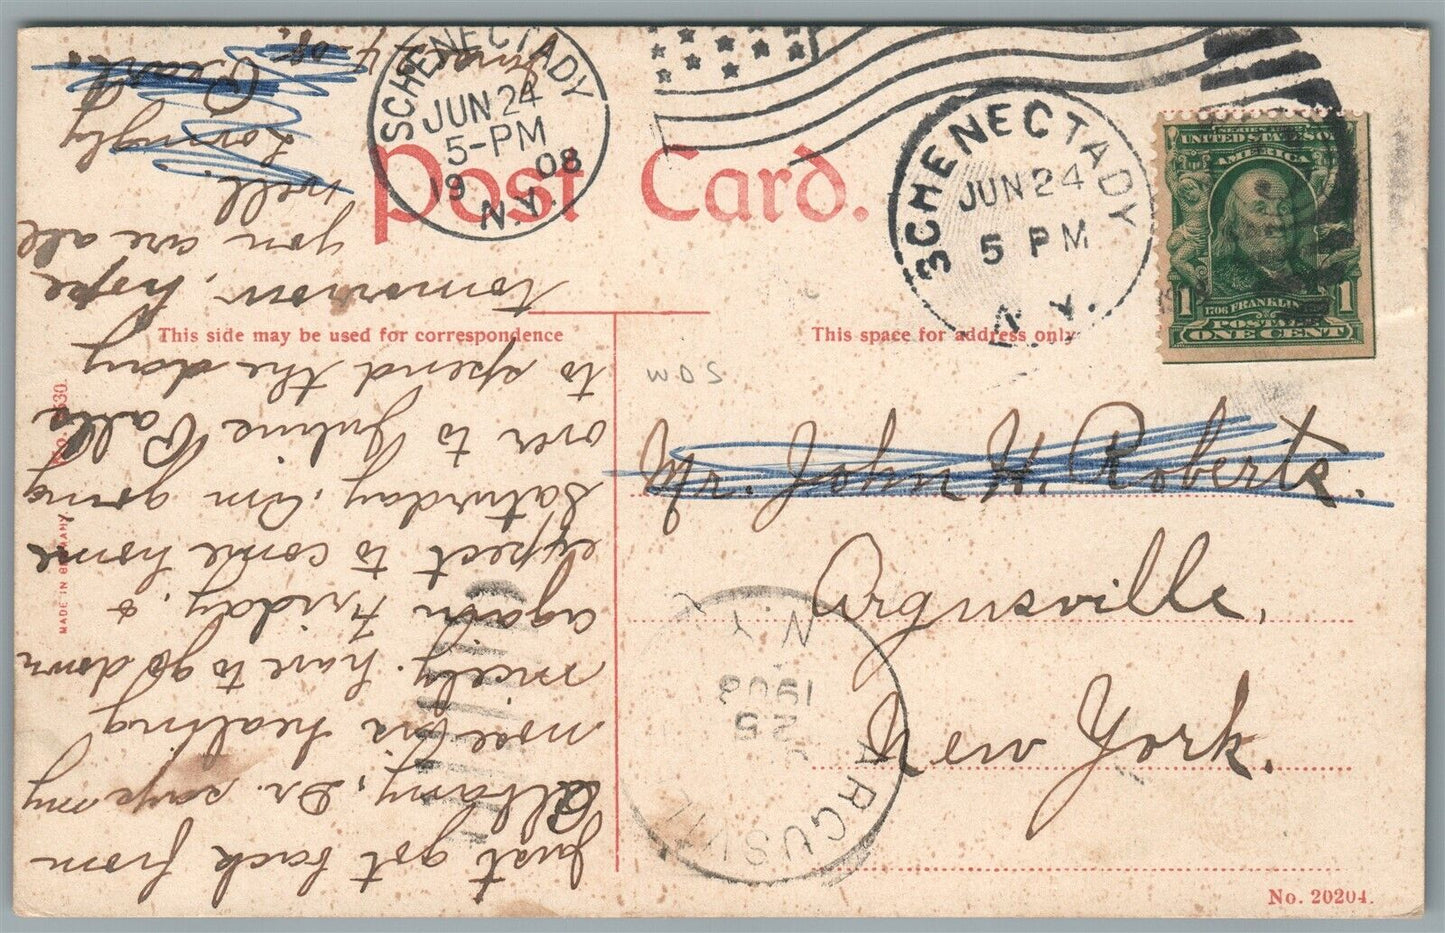 Post Card.
SCHENECTADY
JUN 24
5-PM
1908
N.Y.
SCHENECTADY
JUN 24
5 PM
N.Y.
SERIES
UNITED STATES OF
AMERICA
1706 FRANKLIN
1 POSTAGE 1
ONE CENT
This side may be used for correspondence
This space for address only
SOM
Mr. John H. Roberts.
Argusville,
New York.
ARGUSVILLE
25
1908
N.Y.
No. 20204.
MADE IN GERMANY
June 24 - 08.
Just got back from
Albany, Dr. says my
nose is healing
nicely. have to go down
again Friday. &
expect to come home
Saturday. Am going
over to
to spend the day
tomorrow, hope
you are all
well.
Lovingly
Pearl.